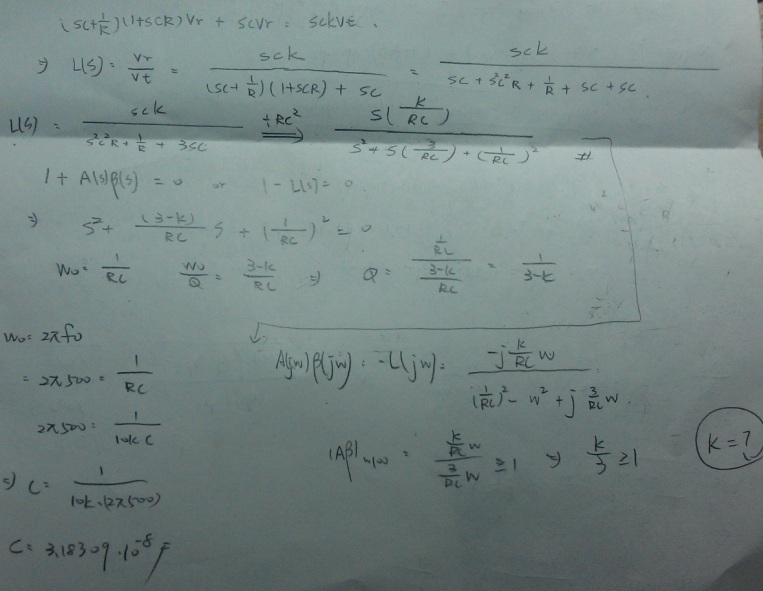 (SC+1/R)(1+SCR)Vr + SCVr = SCKVt.
⇒ L(S) = Vr/Vt = SCK/((SC+1/R)(1+SCR)+SC) = SCK/(SC+S²C²R+1/R+SC+SC).
L(S) = SCK/(S²C²R+1/R+3SC) ÷RC² ⇒ S(K/RC)/(S²+S(3/RC)+(1/RC)²) #
1+A(s)β(s) = 0 or 1-L(s) = 0.
⇒ S²+((3-K)/RC)S+(1/RC)² = 0
Wo = 1/RC Wo/Q = (3-K)/RC ⇒ Q = (1/RC)/((3-K)/RC) = 1/(3-K)
Wo = 2πfo
= 2π500 = 1/RC
2π500 = 1/(10k C)
⇒ C = 1/(10k·(2π500))
C = 3.18309·10⁻⁸ F
A(jw)β(jw) = -L(jw) = (-j(K/RC)W)/((1/RC)²-W²+j(3/RC)W).
|Aβ|w=wo = ((K/RC)W)/((3/RC)W) ≥ 1 ⇒ K/3 ≥ 1
K = ?